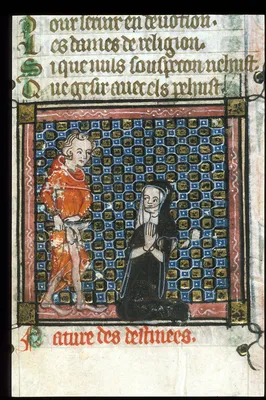 our seruir en deuotion.
Les dames de religion.
Si que nuls souspecon nel eust.
Que gesir auec els peust.
ature des destinees.